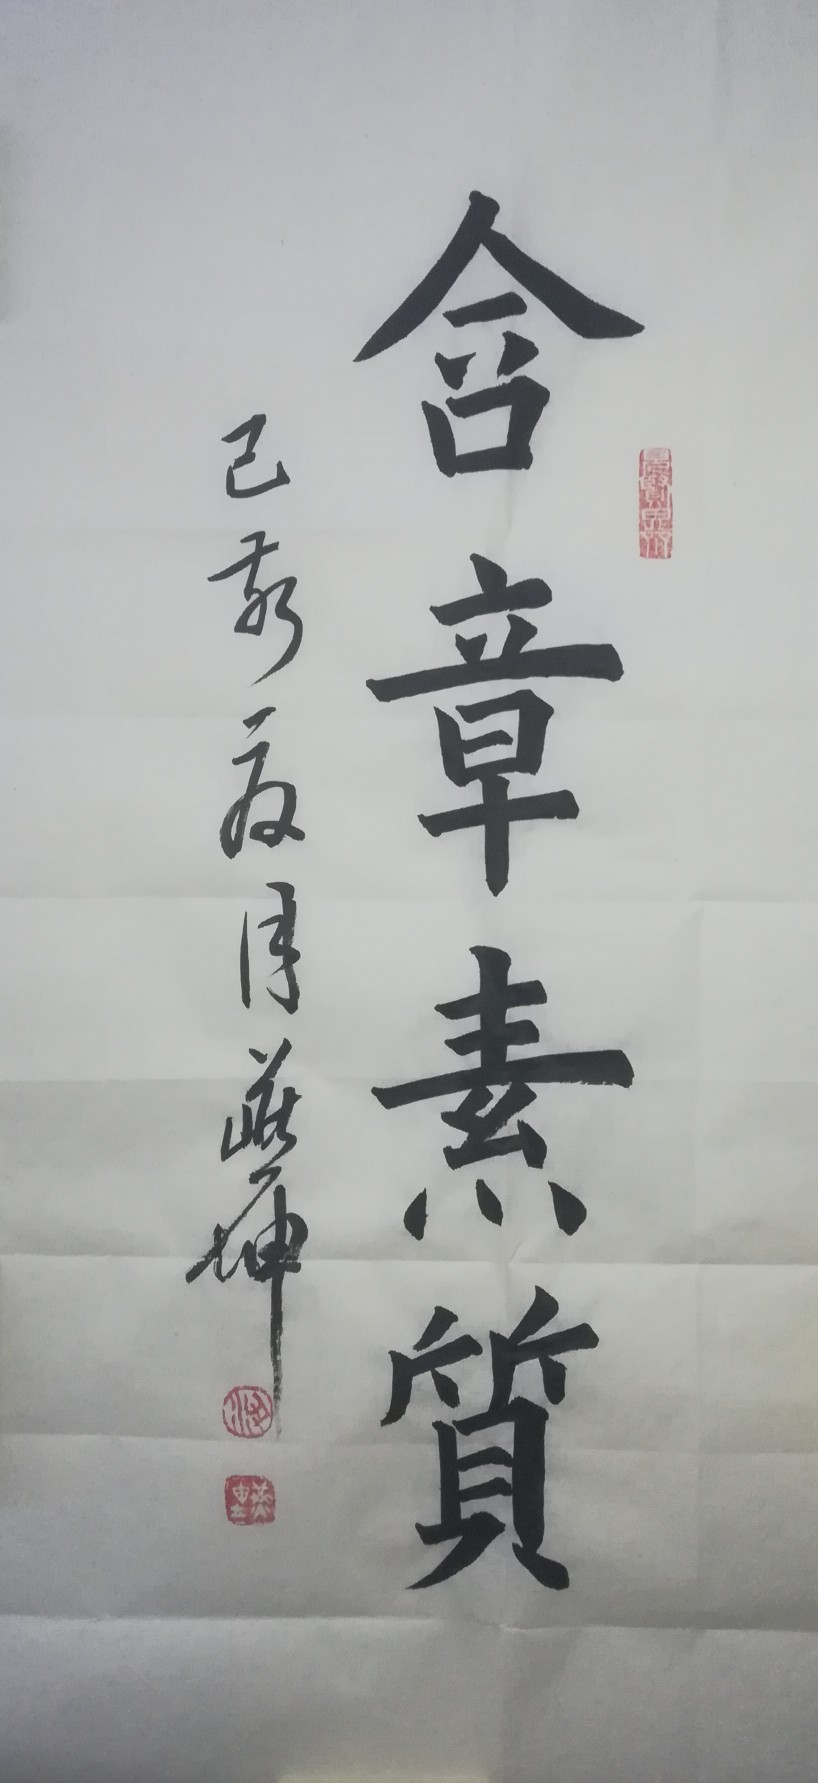 含章素質
己亥夏月燕坤